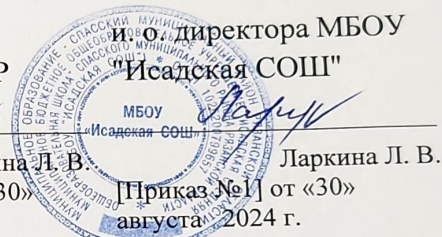 и. о. директора МБОУ
"Исадская СОШ"
МБОУ
«Исадская СОШ»
на Л. В.
Ларкина Л. В.
30»
[Приказ №1] от «30»
августа 2024 г.